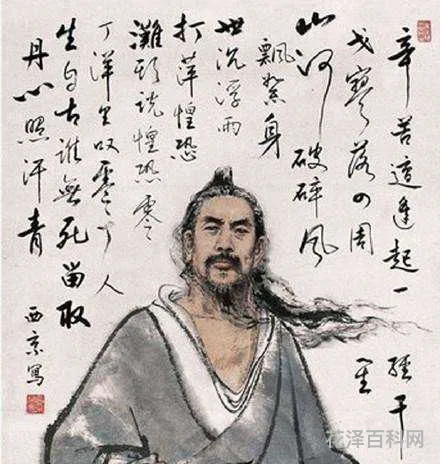 辛苦遭逢起一經干
戈寥落四周星
山河破碎风
飄絮身
世沉浮雨
打萍惶恐
灘頭說惶恐零
丁洋里叹零丁人
生自古誰無死留取
丹心照汗青
西京寫
花泽百科网